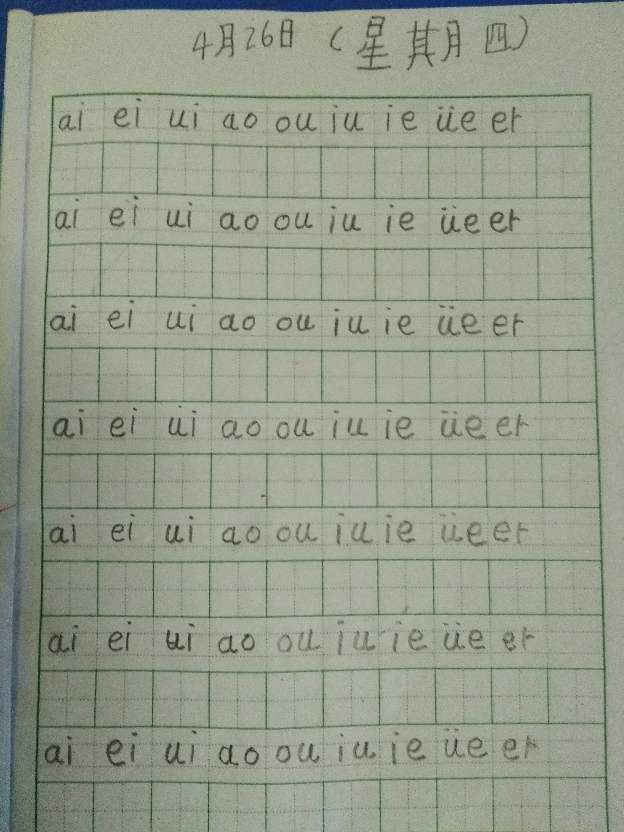 4月26日（星其月四）
ai ei ui ao ou iu ie üe er
ai ei ui ao ou iu ie üe er
ai ei ui ao ou iu ie üe er
ai ei ui ao ou iu ie üe er
ai ei ui ao ou iu ie üe er
ai ei ui ao ou iu ie üe er
ai ei ui ao ou iu ie üe er